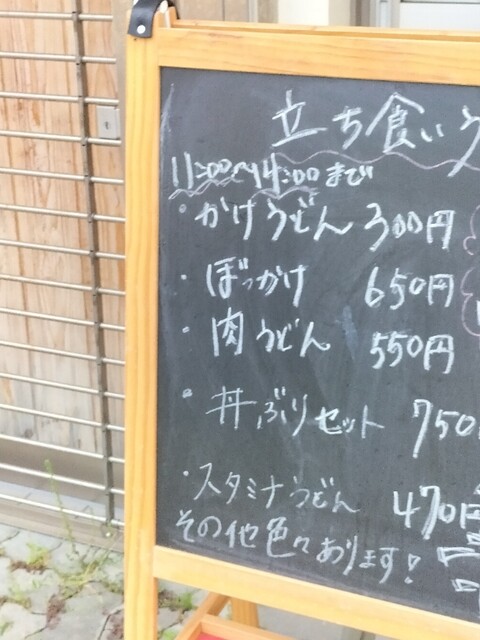 立ち食いう
11:00〜14:00まで
・かけうどん 300円
・ぼっかけ 650円
・肉うどん 550円
・丼ぶりセット 750
・スタミナうどん 470円
その他色々あります!